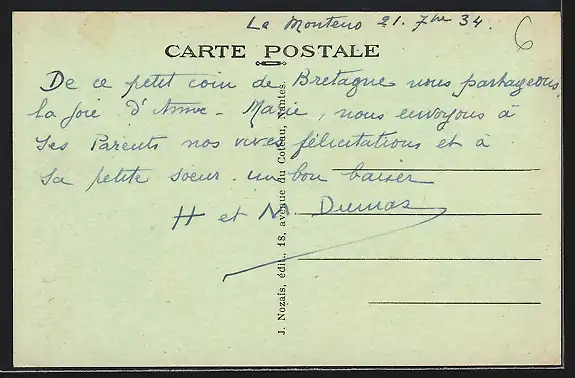 La Monteno 21. 7bre 34.
6
CARTE POSTALE
De ce petit coin de Bretagne nous partageons
la joie d'Anne-Marie, nous envoyons à
Ses Parents nos vives félicitations et à
sa petite soeur un bon baiser
H et M Dumas
J. Nozais, édit., 18, avenue du Coteau, Nantes.